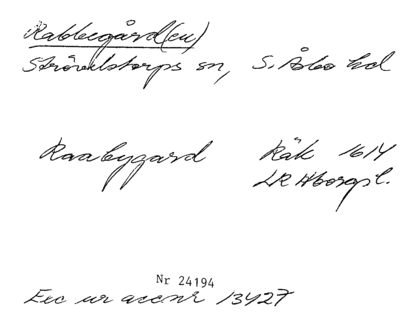 Rabbegård(en)
Strövelstorps sn, S. Åsbo hd
Raabygard Räk 1614
LR Hborgs l.
Nr 24194
Exc ur accnr 13427